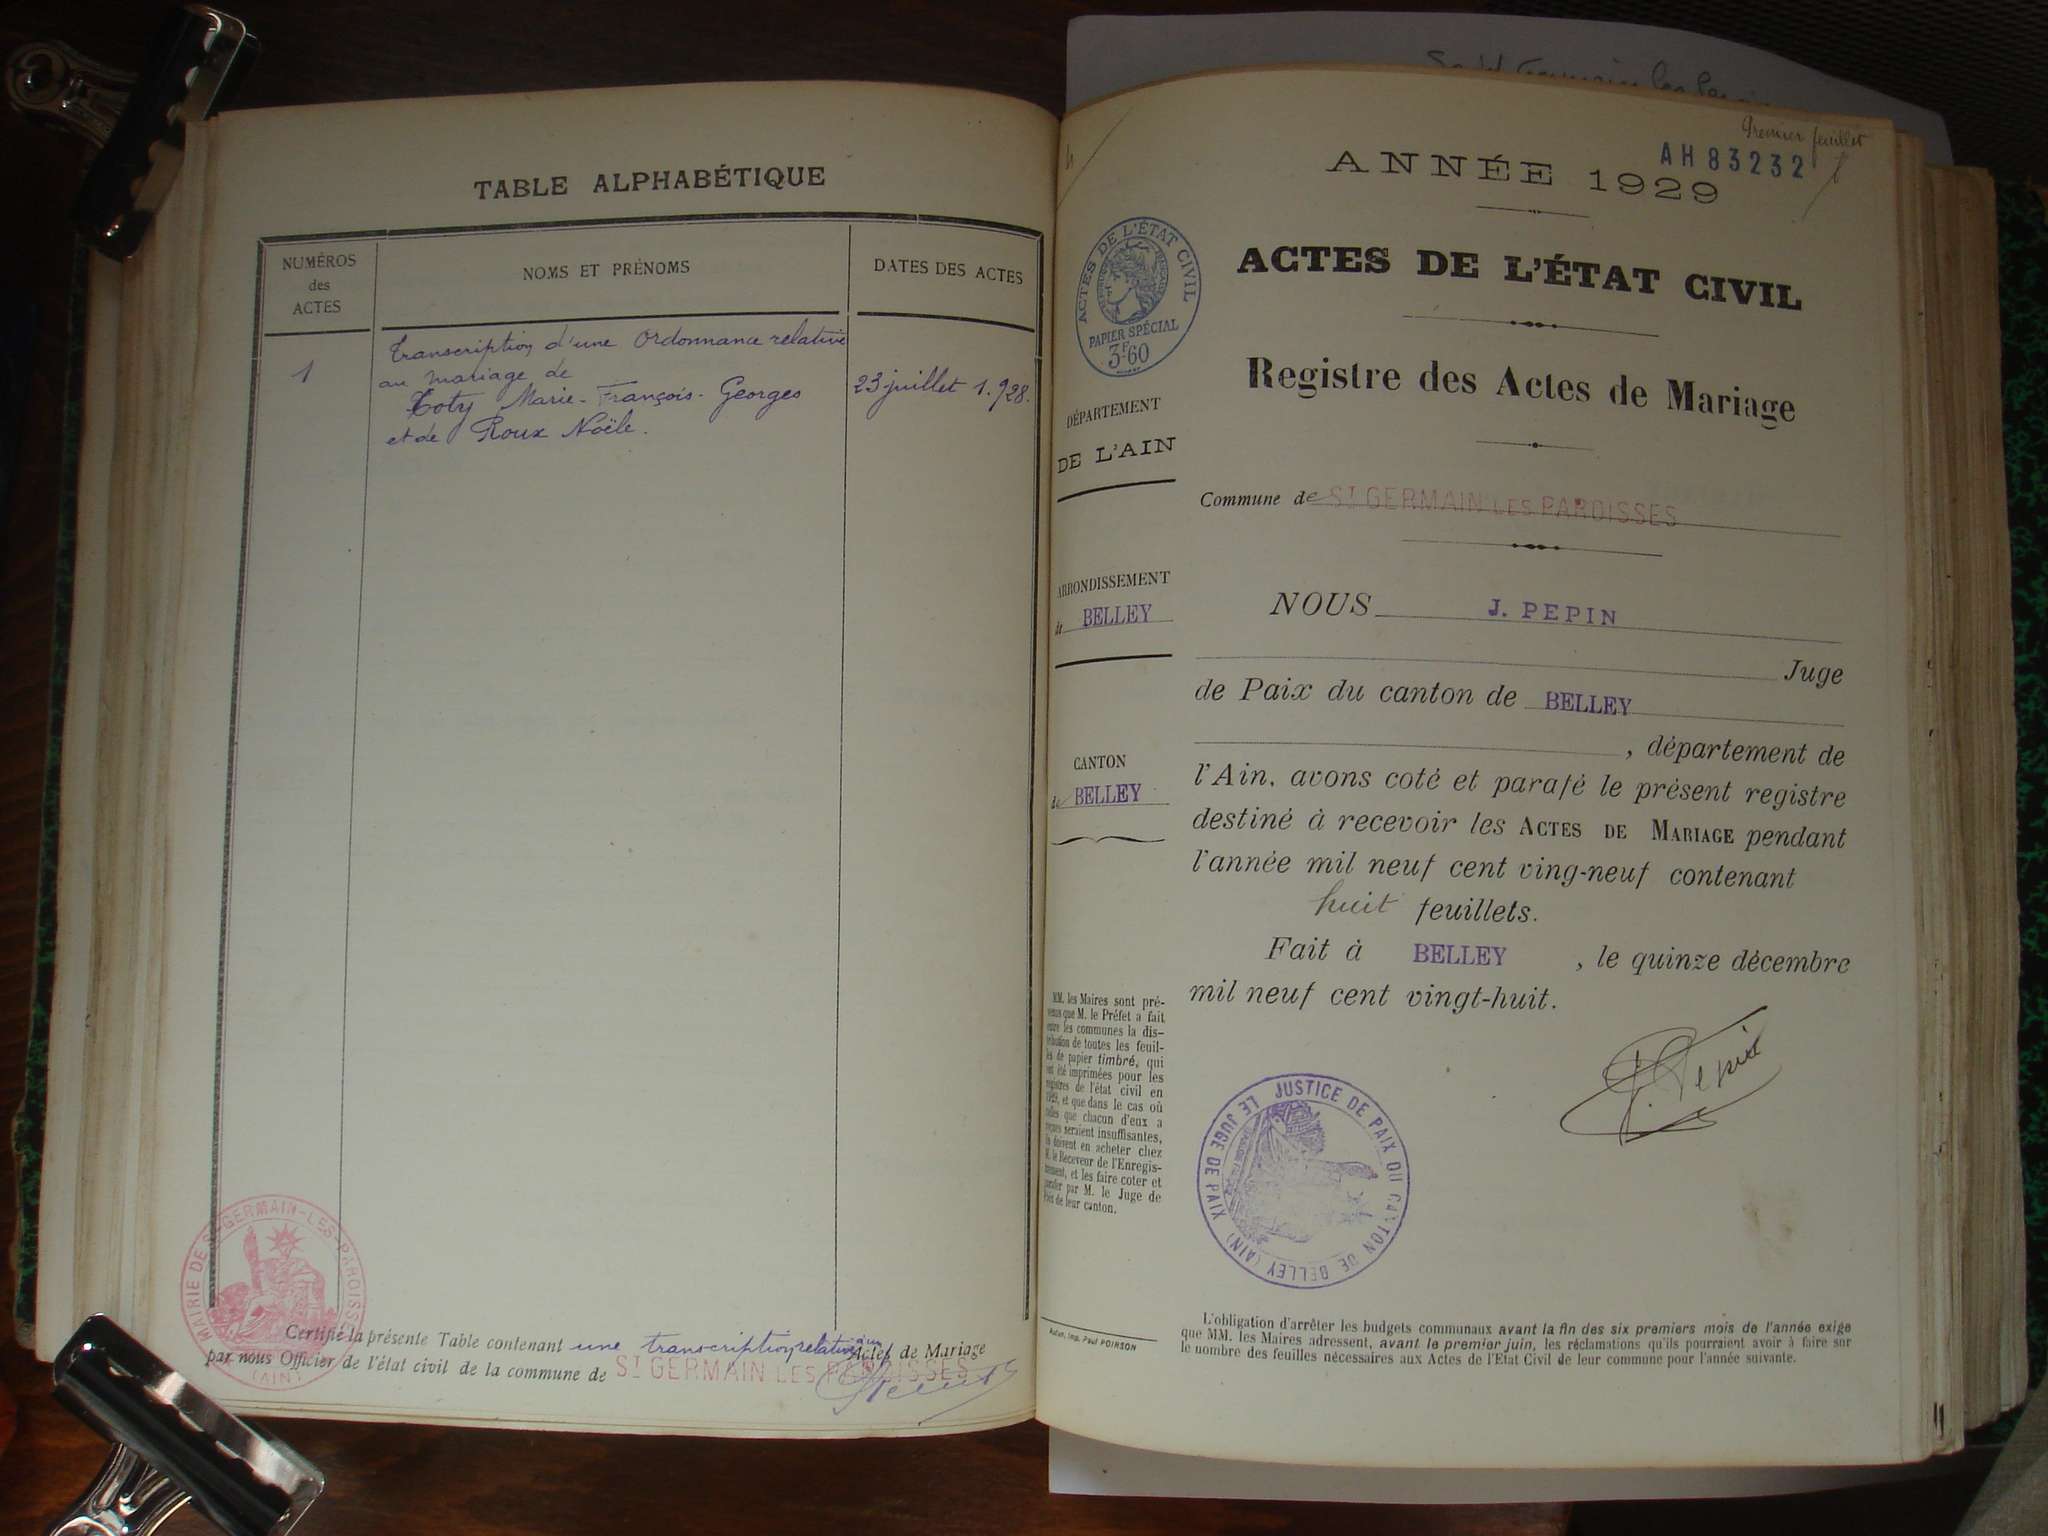 TABLE ALPHABÉTIQUE
NUMÉROS
des
ACTES
NOMS ET PRÉNOMS
DATES DES ACTES
1
Transcription d'une Ordonnance relative
au mariage de
Marie-François-Georges
et de Roux Noële.
23 juillet 1.928.
MAIRIE DE St GERMAIN-LES-PAROISSES
(AIN)
Certifié la présente Table contenant une transcription relative à un Actes de Mariage
par nous Officier de l'état civil de la commune de St GERMAIN LES PAROISSES
Premier feuillet
AH 83232
ANNÉE 1929
ACTES DE L'ÉTAT CIVIL
PAPIER SPÉCIAL
3F60
ACTES DE L'ÉTAT CIVIL
Registre des Actes de Mariage
DÉPARTEMENT
DE L'AIN
Commune de St GERMAIN LES PAROISSES
ARRONDISSEMENT
de BELLEY
CANTON
de BELLEY
NOUS J. PEPIN
Juge
de Paix du canton de BELLEY
, département de
l'Ain, avons coté et parafé le présent registre
destiné à recevoir les ACTES DE MARIAGE pendant
l'année mil neuf cent ving-neuf contenant
huit feuillets.
Fait à BELLEY , le quinze décembre
mil neuf cent vingt-huit.
J. Pepin
MM. les Maires sont pré-
venus que M. le Préfet a fait
entre les communes la dis-
tribution de toutes les feuil-
les de papier timbré, qui
ont été imprimées pour les
registres de l'état civil en
1929, et que dans le cas où
celles que chacun d'eux a
reçues seraient insuffisantes,
ils doivent en acheter chez
M. le Receveur de l'Enregis-
trement, et les faire coter et
parafer par M. le Juge de
Paix de leur canton.
JUSTICE DE PAIX DU CANTON DE BELLEY (AIN)
LE JUGE DE PAIX
Imp. Paul POIRSON
L'obligation d'arrêter les budgets communaux avant la fin des six premiers mois de l'année exige
que MM. les Maires adressent, avant le premier juin, les réclamations qu'ils pourraient avoir à faire sur
le nombre des feuilles nécessaires aux Actes de l'Etat Civil de leur commune pour l'année suivante.